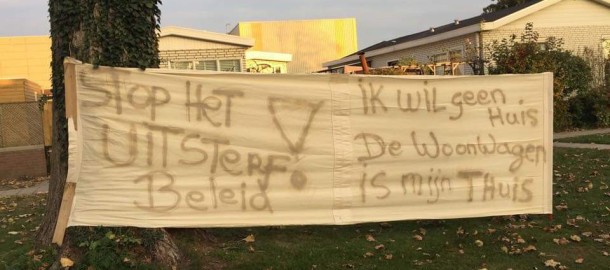 STOP HET
UITSTERF!
Beleid
iK wiL geen
Huis
De WoonWagen
is mijn THuis